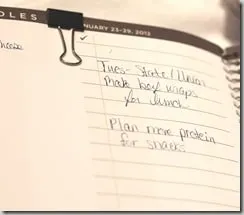 OLES
NUARY 23-29, 2012
Tues- State/Union
Make beef wraps
for lunch
Plan more protein
for snacks